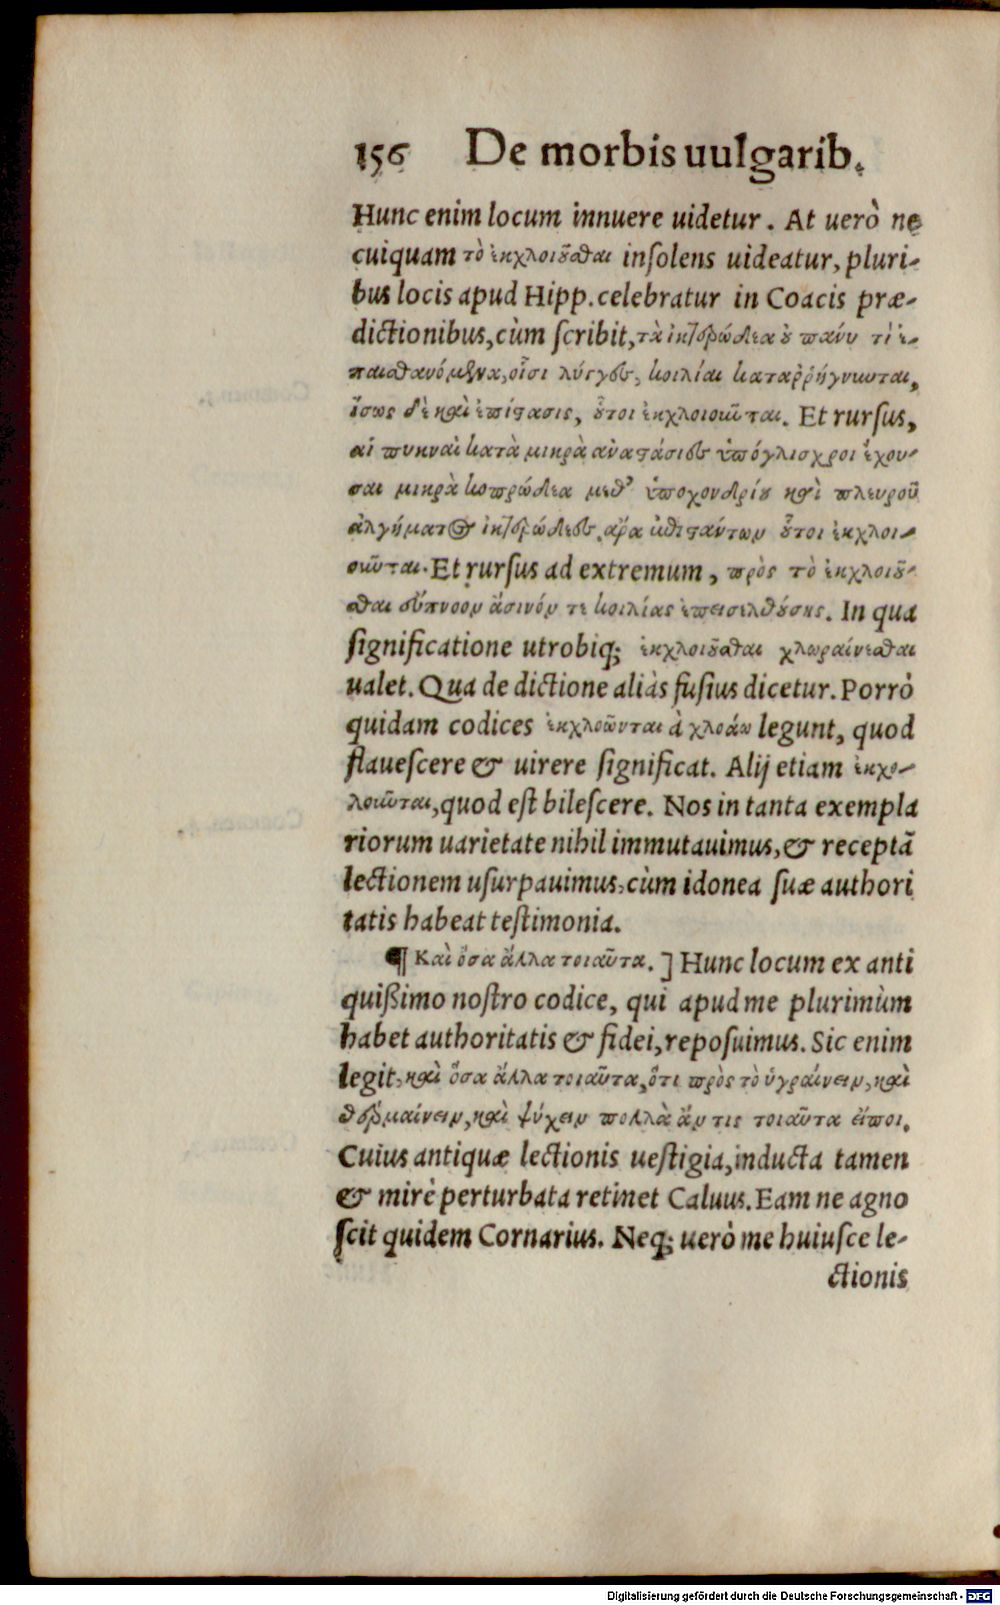 156 De morbis uulgarib.
Hunc enim locum innuere uidetur. At uerò ne
cuiquam τὸ ἐκχλοιοῦσθαι insolens uideatur, pluri-
bus locis apud Hipp. celebratur in Coacis præ-
dictionibus, cùm scribit, τὰ ἰκτερώδεα οὐ πάνυ τὶ ἐ-
παισθανόμενα, οἷσι λύγγες, κοιλίαι καταῤῥήγνωνται,
ἴσως δὲ καὶ ἐπίστασις, οὗτοι ἐκχλοιοῦνται. Et rursus,
αἱ πυκναὶ κατὰ μικρὰ ἀναστάσιες ὑπόγλισχροι ἔχου-
σαι μικρὰ κοπρώδεα μεθ' ὑποχονδρίου καὶ πλευροῦ
ἀλγήματος ἰκτερώδεες. ἆρα ἐπιστάντων οὗτοι ἐκχλοι-
οῦνται. Et rursus ad extremum, πρὸς τὸ ἐκχλοιοῦ-
σθαι σύπνοον ἄσινόν τε κοιλίας ἐπεισελθούσης. In qua
significatione utrobiq; ἐκχλοιοῦσθαι χλωραίνεσθαι
ualet. Qua de dictione aliàs fusius dicetur. Porrò
quidam codices ἐκχλοῶνται à χλοάω legunt, quod
flauescere & uirere significat. Alij etiam ἐκχο-
λοιῶνται, quod est bilescere. Nos in tanta exempla
riorum uarietate nihil immutauimus, & receptã
lectionem usurpauimus, cùm idonea suæ authori
tatis habeat testimonia.
¶ Καὶ ὅσα ἄλλα τοιαῦτα. ] Hunc locum ex anti
quißimo nostro codice, qui apud me plurimùm
habet authoritatis & fidei, reposuimus. Sic enim
legit, καὶ ὅσα ἄλλα τοιαῦτα, ὅτι πρὸς τὸ ὑγραίνειν, καὶ
θερμαίνειν, καὶ ψύχειν πολλὰ ἄν τις τοιαῦτα εἴποι.
Cuius antiquæ lectionis uestigia, inducta tamen
& mirè perturbata retinet Caluus. Eam ne agno
scit quidem Cornarius. Neq; uerò me huiusce le-
ctionis
Digitalisierung gefördert durch die Deutsche Forschungsgemeinschaft - DFG